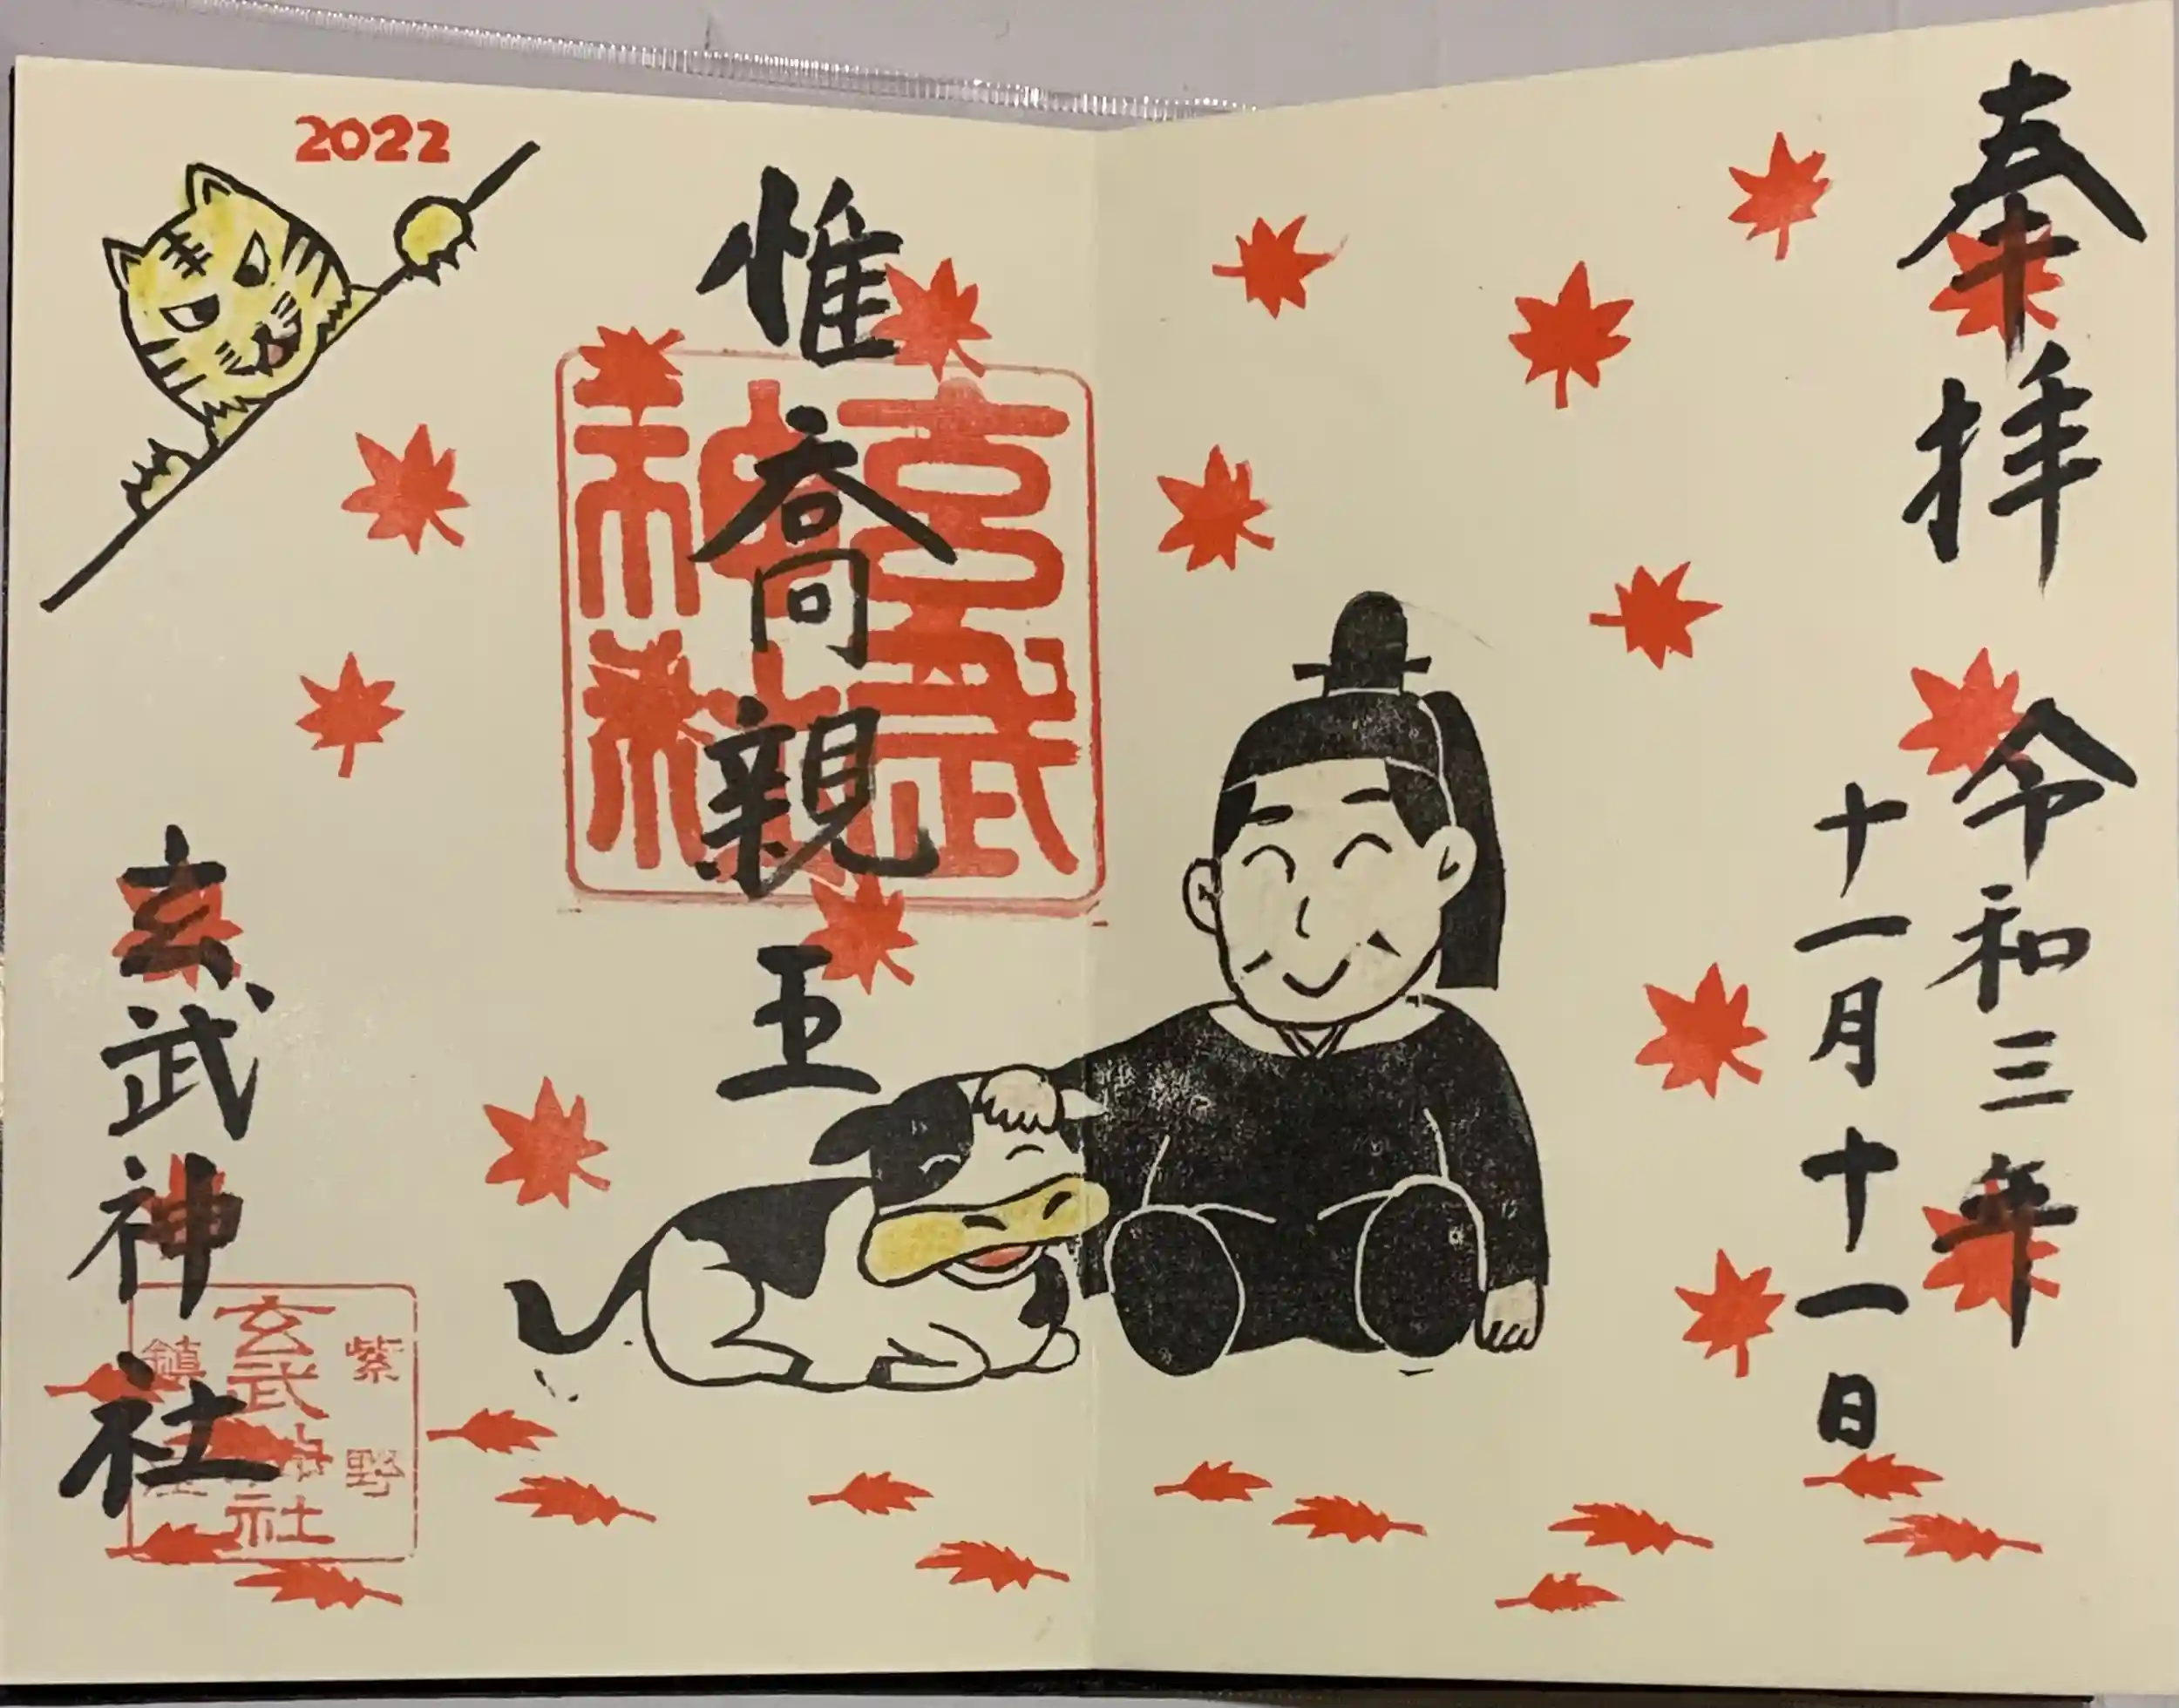 奉拝
令和三年
十一月十一日
惟喬親王
玄武神社
玄武神社
2022
紫野
玄武神社
鎮